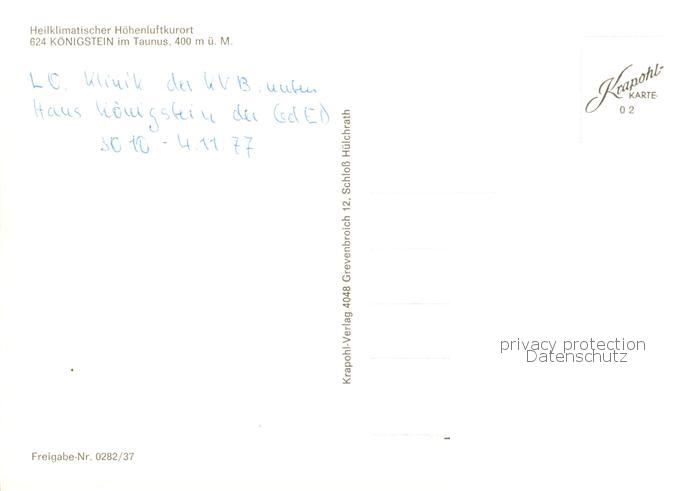 Heilklimatischer Höhenluftkurort
624 KÖNIGSTEIN im Taunus, 400 m ü. M.
Klinik der KVB. unten
Haus Königstein der GdED
30 10 - 4.11 77
Krapohl-Verlag 4048 Grevenbroich 12, Schloß Hülchrath
Krapohl-
KARTE
0 2
privacy protection
Datenschutz
Freigabe-Nr. 0282/37